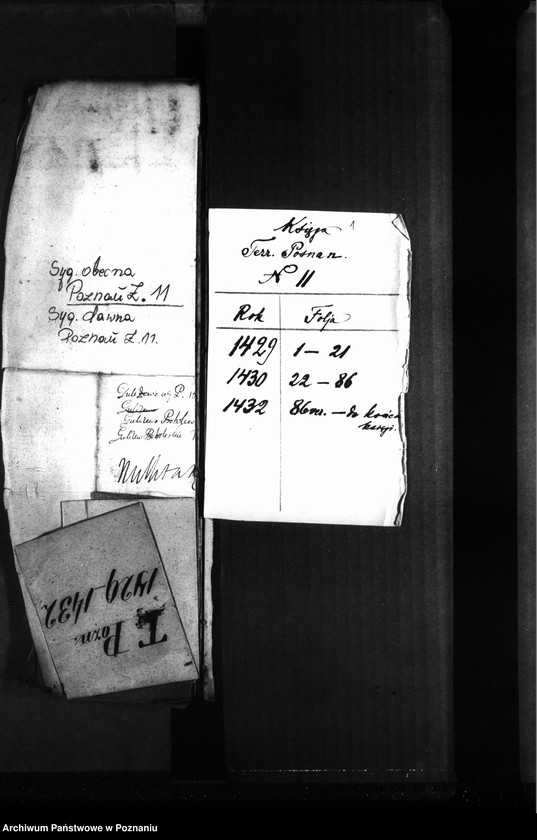 Syg. obecna
Poznań Z. 11
Syg. dawna
Poznań Z 11.
T. Pozn.
1429-1432
1
Księga
Terr. Posnan.
N 11
Rok Folja
1429 1 — 21
1430 22 — 86
1432 86 — do końca
księgi.
Archiwum Państwowe w Poznaniu